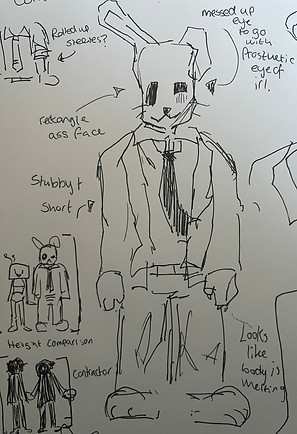 Rolled up
sleeves?
messed up
eye
to go
with
Prosthetic
eye of
irl.
rectangle
ass face
Stubby +
Short
Height Comparison
Contractor
Looks
like
body is
melting